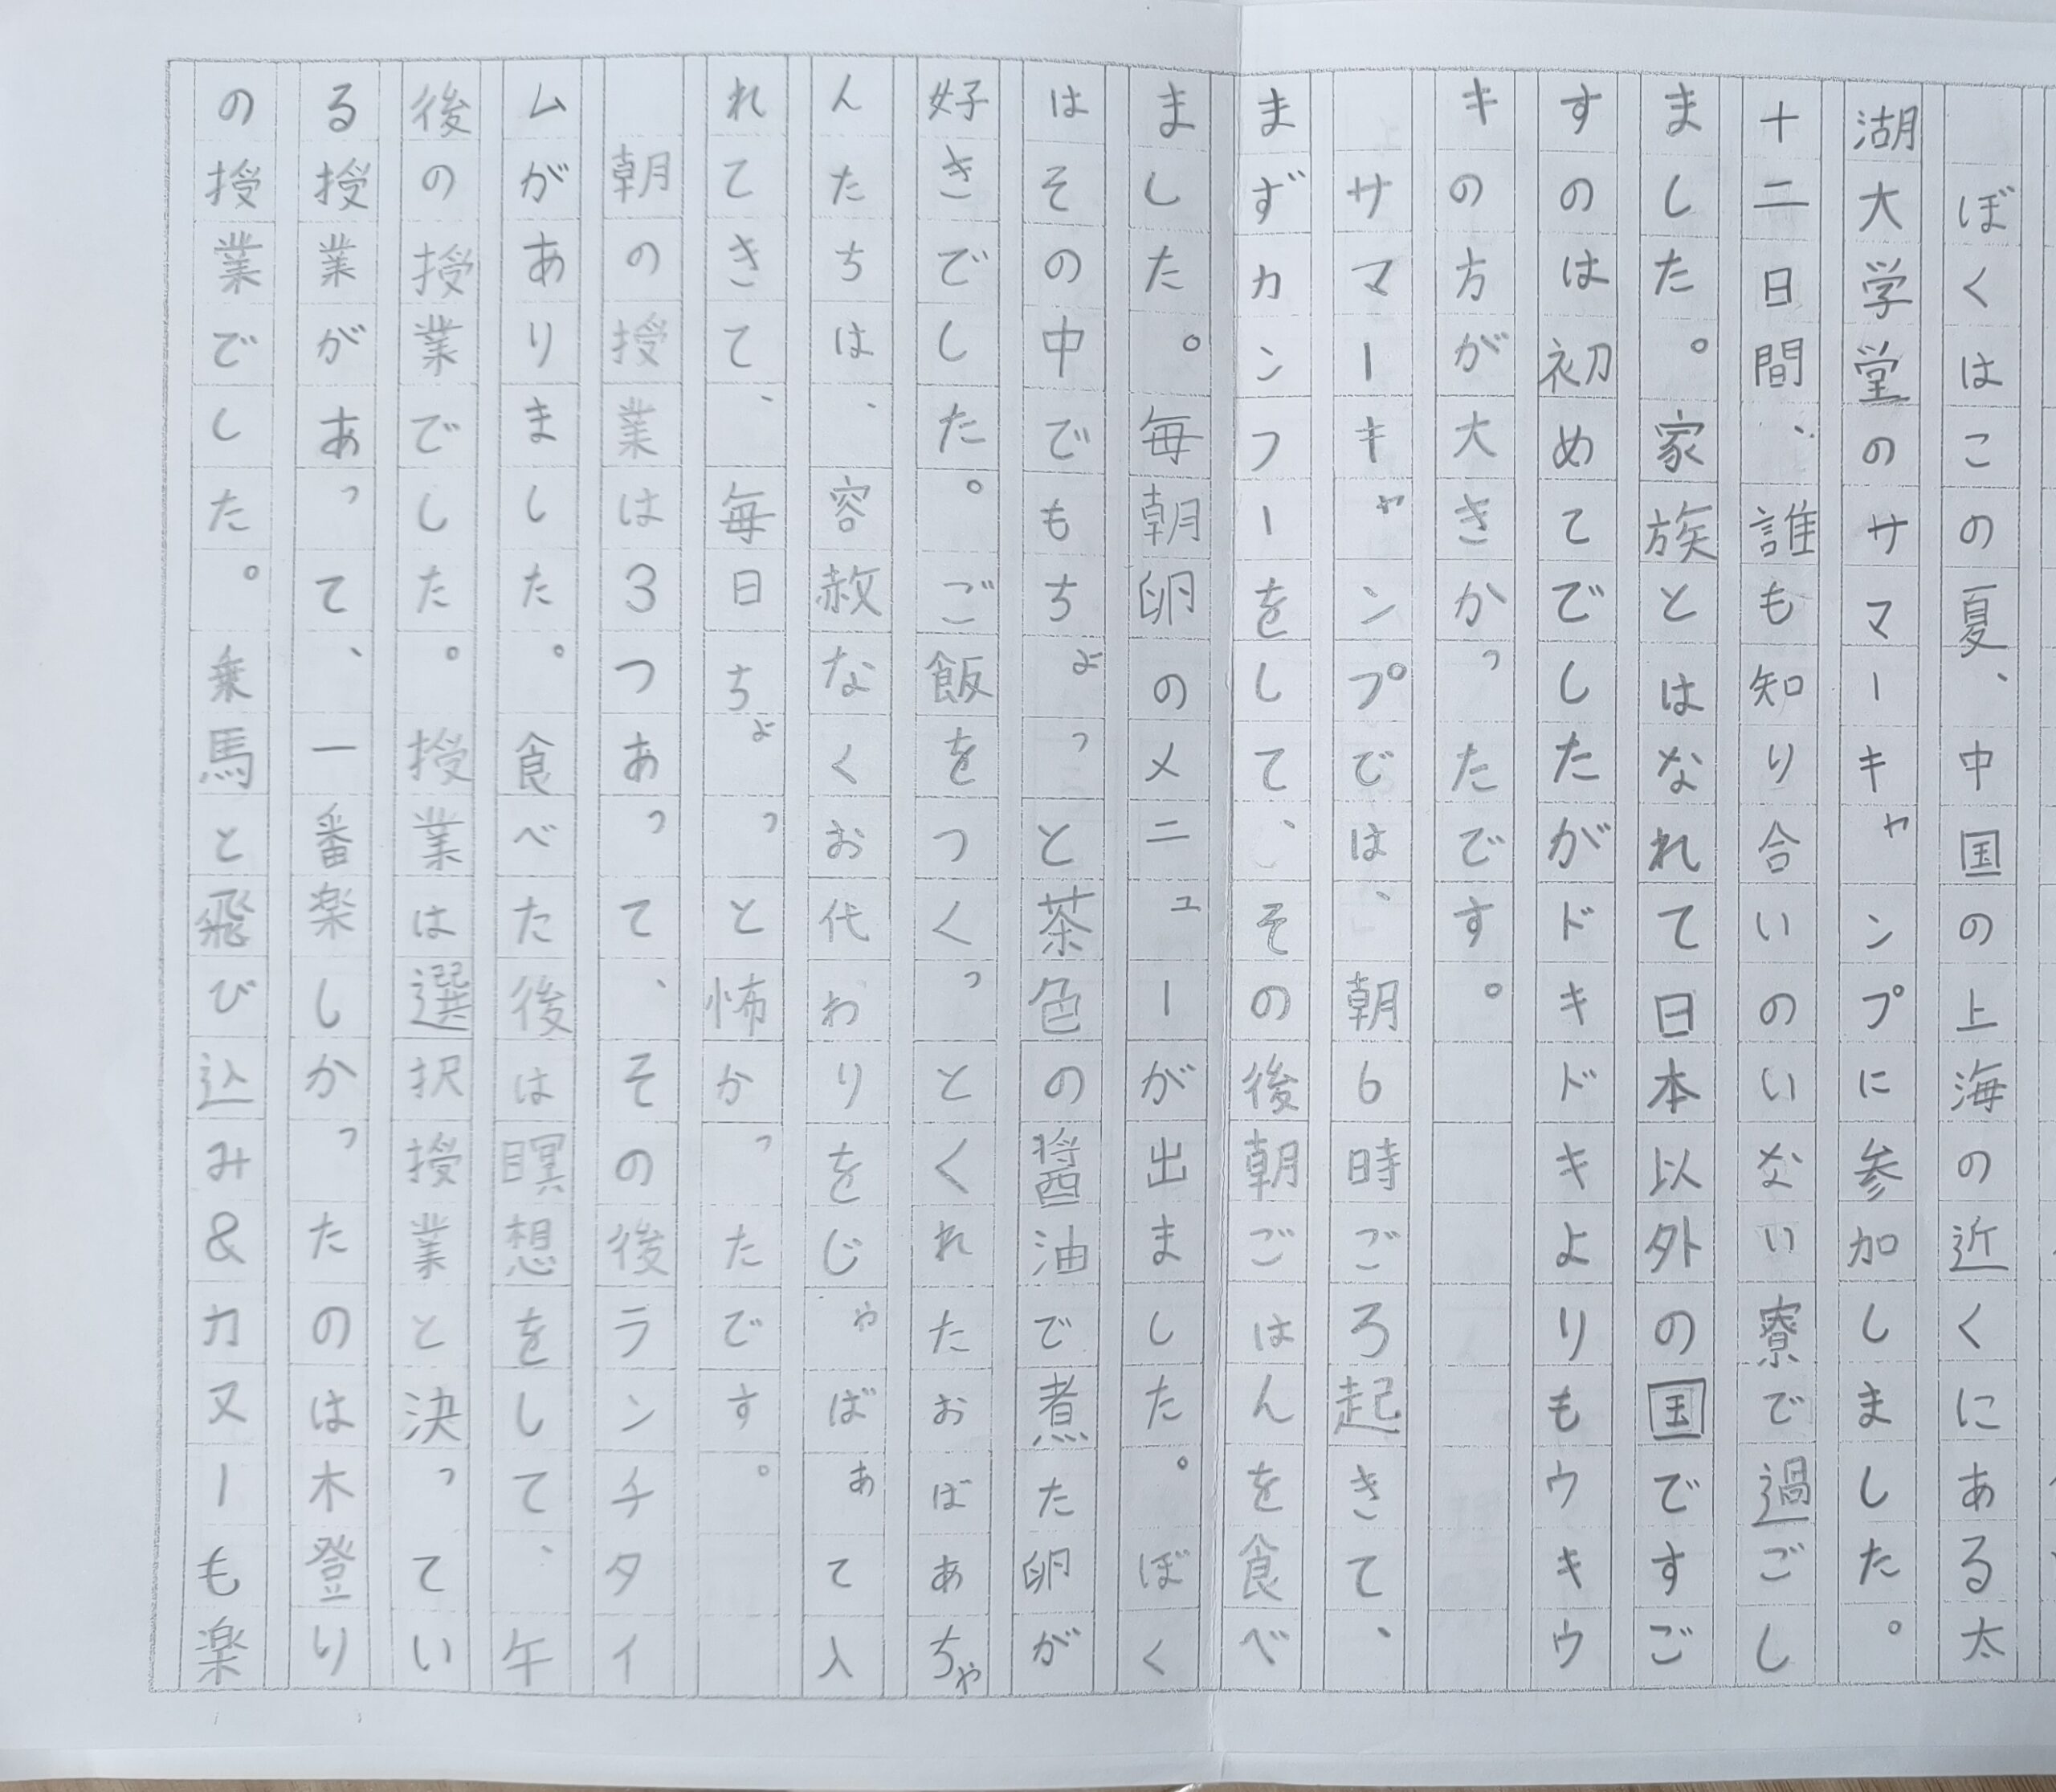 ぼくはこの夏、中国の上海の近くにある太
湖大学堂のサマーキャンプに参加しました。
十二日間、誰も知り合いのいない寮で過ごし
ました。家族とはなれて日本以外の国ですご
すのは初めてでしたがドキドキよりもウキウ
キの方が大きかったです。
サマーキャンプでは、朝6時ごろ起きて、
まずカンフーをして、その後朝ごはんを食べ
ました。毎朝卵のメニューが出ました。ぼく
はその中でもちょっと茶色の醤油で煮た卵が
好きでした。ご飯をつくっとくれたおばあちゃ
んたちは、容赦なくお代わりをじゃばぁて入
れてきて、毎日ちょっと怖かったです。
朝の授業は3つあって、その後ランチタイ
ムがありました。食べた後は瞑想をして、午
後の授業でした。授業は選択授業と決ってい
る授業があって、一番楽しかったのは木登り
の授業でした。乗馬と飛び込み&カヌーも楽